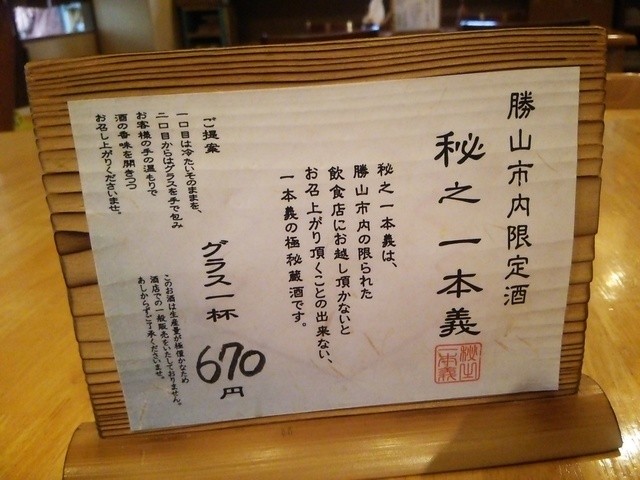 勝山市内限定酒
秘之一本義
秘之
一本義
秘之一本義は、
勝山市内の限られた
飲食店にお越し頂かないと
お召上がり頂くことの出来ない、
一本義の極秘蔵酒です。
ご提案
一口目は冷たいそのままを、
二口目からはグラスを手で包み
お客様の手の温もりで
酒の香味を開きつつ
お召し上がりくださいませ。
グラス一杯
670円
このお酒は生産量が極僅かなため
酒店での一般販売をいたしておりません。
あしからずご了承くださいませ。